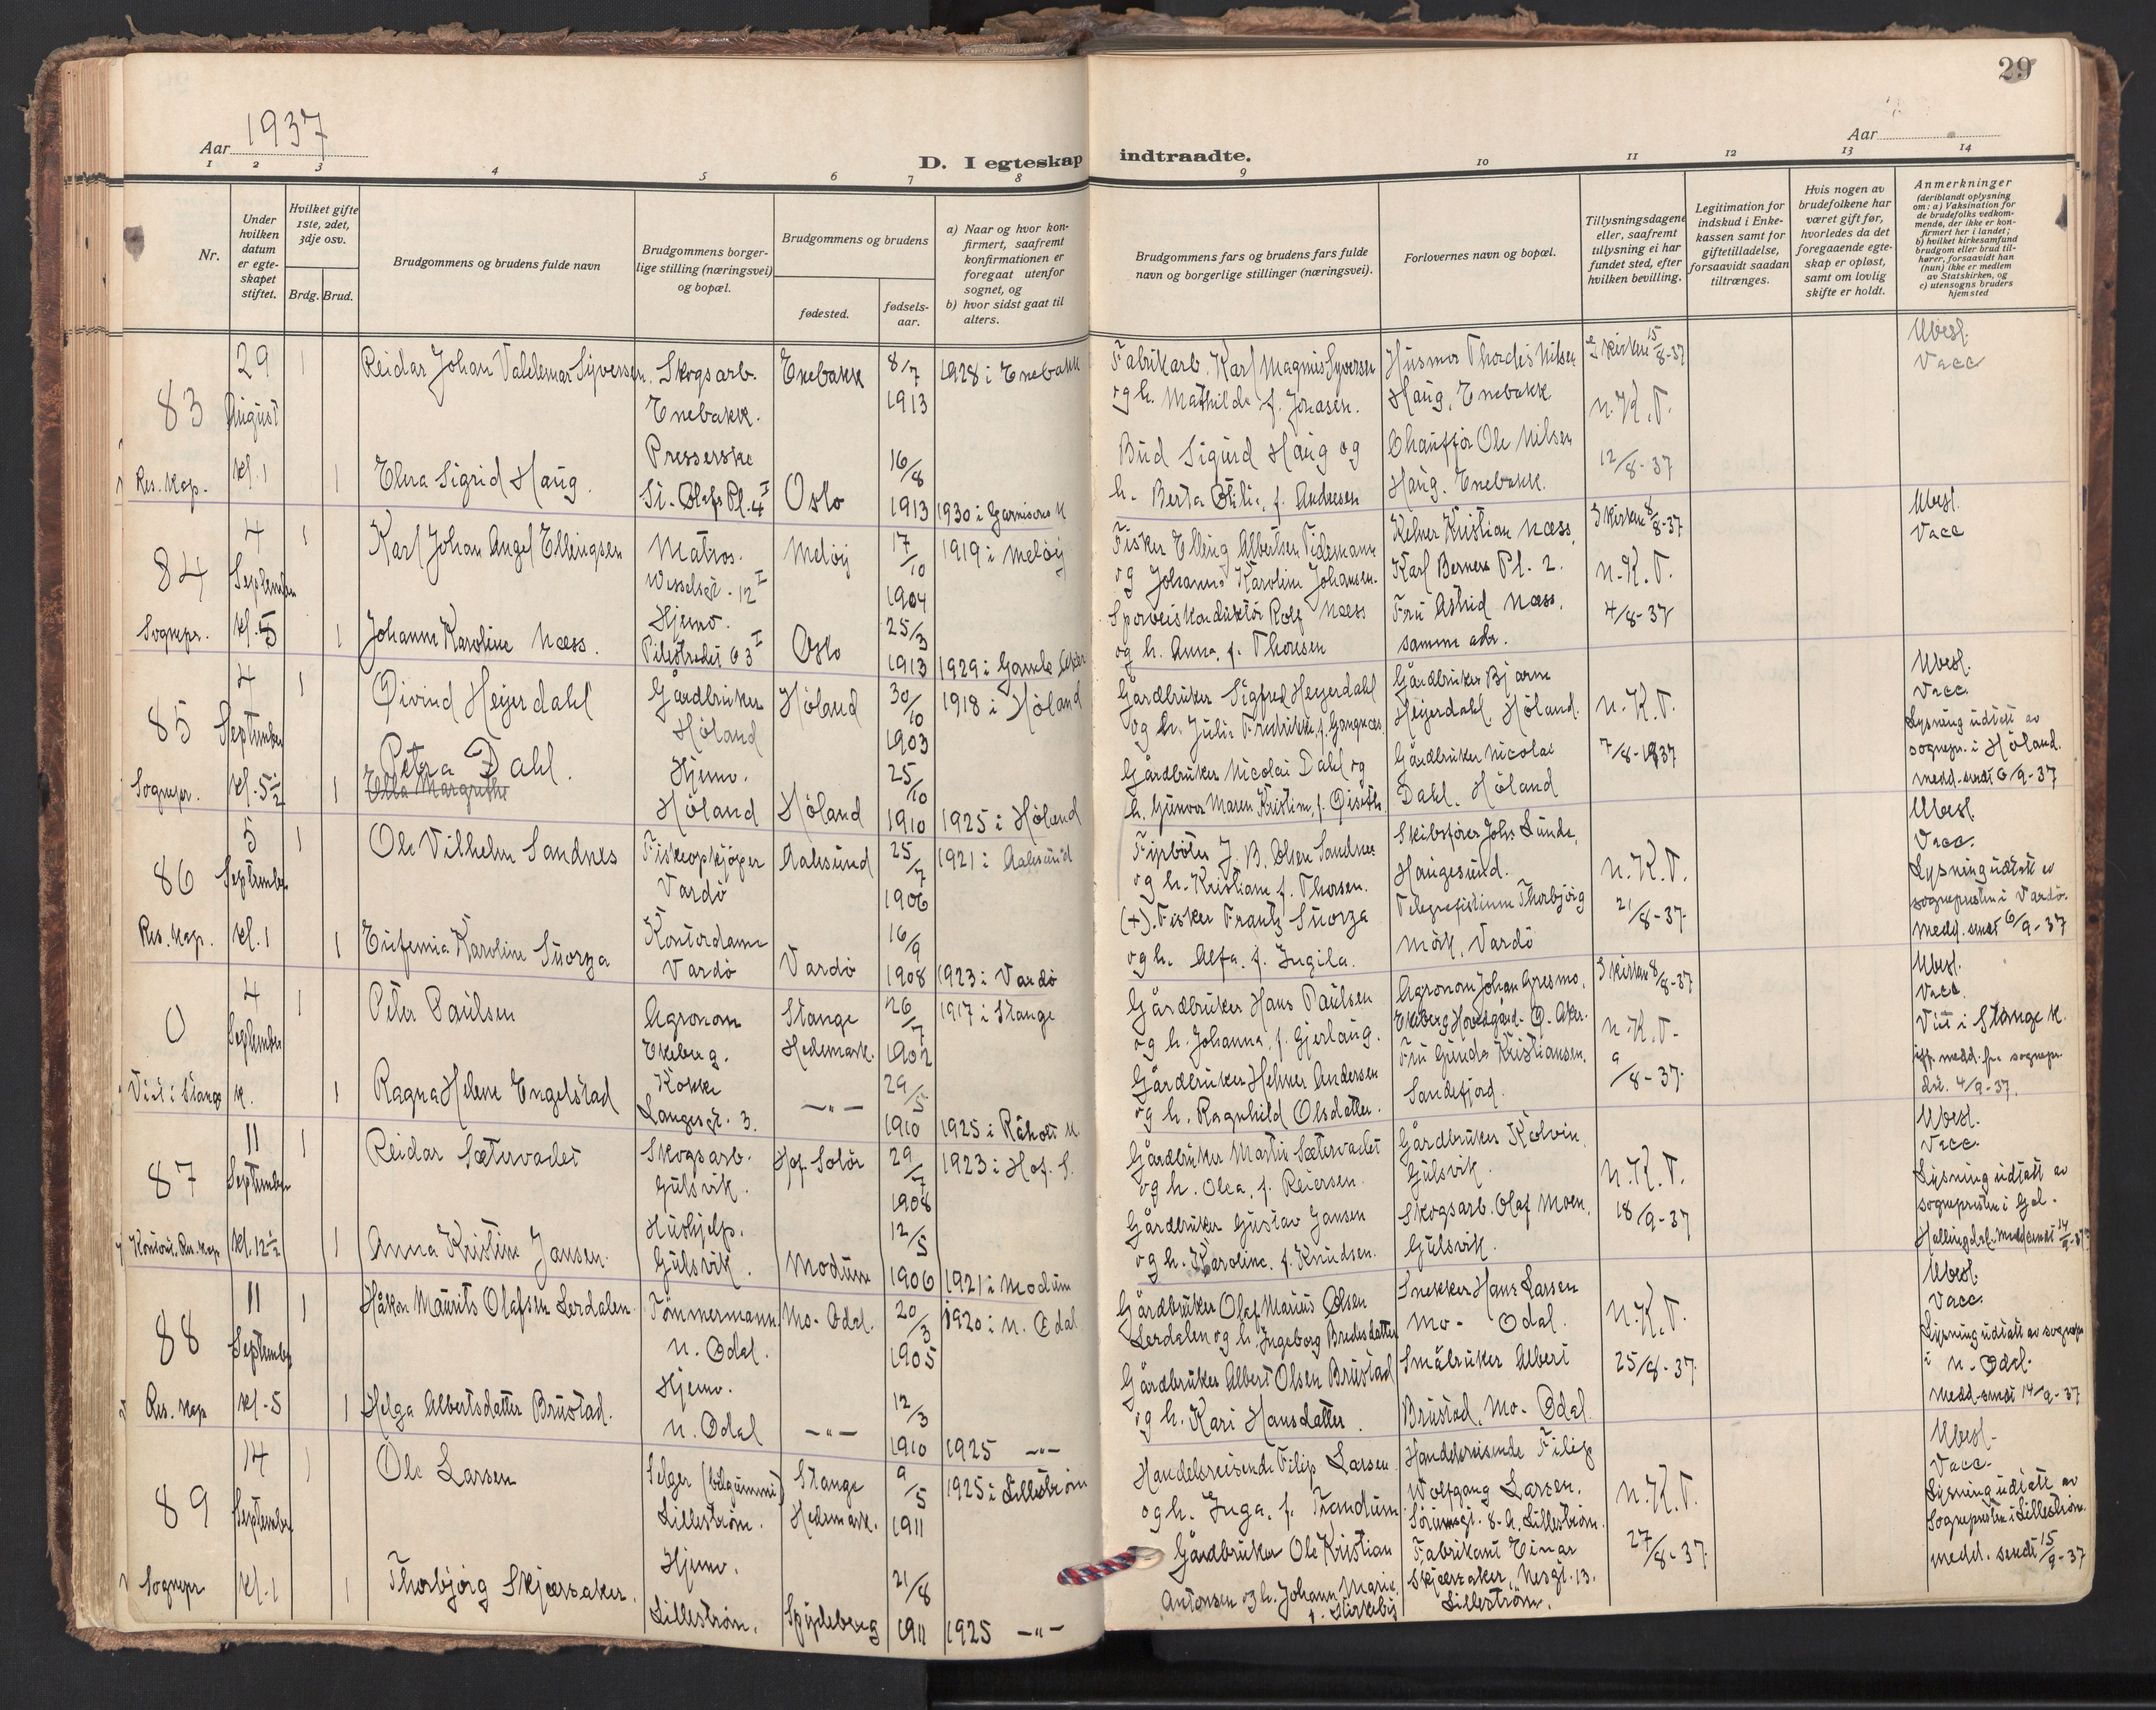 29
Aar 1937
Aar
D. I egteskap indtraadte.
1 2 3 4 5 6 7 8 9 10 11 12 13 14
Nr.
Under hvilken datum er egteskapet stiftet.
Hvilket gifte 1ste, 2det, 3dje osv.
Brdg. Brud.
Brudgommens og brudens fulde navn
Brudgommens borgerlige stilling (næringsvei) og bopæl.
Brudgommens og brudens
fødested.
fødselsaar.
a) Naar og hvor konfirmert, saafremt konfirmationen er foregaat utenfor sognet, og
b) hvor sidst gaat til alters.
Brudgommens fars og brudens fars fulde navn og borgerlige stillinger (næringsvei).
Forlovernes navn og bopæl.
Tillysningsdagene eller, saafremt tillysning ei har fundet sted, efter hvilken bevilling.
Legitimation for indskud i Enkekassen samt for giftetilladelse, forsaavidt saadan tiltrænges.
Hvis nogen av brudefolkene har været gift før, hvorledes da det foregaaende egteskap er opløst, samt om lovlig skifte er holdt.
Anmerkninger (deriblandt oplysning om: a) Vaksination for de brudefolks vedkommende, der ikke er konfirmert her i landet; b) hvilket kirkesamfund brudgom eller brud tilhører, forsaavidt han (hun) ikke er medlem av Statskirken, og c) utensogns bruders hjemsted
83 29 August kl. 1 Res. Kap.
1 Reidar Johan Valdemar Syversen. Skogsarb. Enebakk. Enebakk 8/7 1913 1928 i Enebakk
Fabrikarb. Karl Magnus Syversen og h. Mathilde f. Jonasen.
Husmor Thordis Nilsen Haug, Enebakk
I kirken 15/8-37 n.K.T. 12/8-37
Ubesl. Vacc
1 Elna Sigrid Haug. Presserske St. Olafs Pl. 4 I Oslo 16/8 1913 1930 i Garnisons K
Bud Sigurd Haug og h. Berta Otilie, f. Andresen
Chauffør Ole Nilsen Haug. Enebakk.
84 4 September kl. 5 Sognepr.
1 Karl Johan Angel Ellingsen Matros. Wesselsgt. 12 I Meløy 17/10 1904 1919 i Meløy
Fisker Elling Albertsen Tidemann og Johanna Karoline Johansen.
Kelner Kristian Næss, Karl Berners Pl. 2.
I kirken 8/8-37 n.K.T. 4/8-37
Ubesl. Vacc
1 Johanne Karoline Næss. Hjemv. Pilestredet 63 I Oslo 25/3 1913 1929 i Gamle Aker
Sporveiskonduktør Rolf Næss og h. Anna, f. Thoresen
Fru Astrid Næss, samme adr.
85 4 September kl. 5½ Sognepr.
1 Øivind Heyerdahl Gårdbruker Høland Høland 30/10 1903 1918 i Høland
Gårdbruker Sigfred Heyerdahl og h. Julie Fredrikke, f. Gangnæs.
Gårdbruker Bjarne Heyerdahl, Høland.
n.K.T. 7/8-1937
Ubesl. Vacc. Lysning udtatt av sognepr. i Høland. medd. sendt 6/9-37
1 Petra Dahl. Ella Margrethe Hjemv. Høland Høland 25/10 1910 1925 i Høland
Gårdbruker Nicolai Dahl og h. Gunvor Maren Kristine, f. Øiseth
Gårdbruker Nicolai Dahl. Høland
86 5 September kl. 1 Res. Kap.
1 Ole Vilhelm Sandnes Fiskeopkjøper Vardø Aalesund 25/7 1906 1921 i Aalesund
J. B. Olsen Sandnes og h. Kristiane f. Thorsen.
Skibsfører Johs Lunde, Haugesund.
n.K.T. 21/8-37
Ubesl. Vacc. Lysning udtatt av sognepresten i Vardø. Medd. sendt 6/9-37
1 Eufemia Karoline Suorza Kontordame Vardø Vardø 16/9 1908 1923 i Vardø
(+). Fisker Frantz Suorza og h. Alfa. f. Ingila.
Telegrafistinne Thorbjørg Mørk, Vardø
0 4 September Viet i Stange K.
1 Peter Paulsen Agronom Ekeberg. Stange Hedemark. 26/7 1902 1917 i Stange
Gårdbruker Hans Paulsen og h. Johanna, f. Gjerlaug.
Agronom Johan Gresmo, Ekeberg Hovedgård. Ø. Aker.
I kirken 8/8-37 n.K.T. 9/8-37.
Ubesl. Vacc. Viet i Stange K. iflg. medd. fra sognepr. 4/9-37.
1 Ragna Helene Engelstad Kokke Langesgt. 3. —"— 29/5 1910 1925 i Råholt K
Gårdbruker Helmer Andersen og h. Ragnhild Olsdatter.
Fru Gunda Kristiansen, Sandefjord.
87 11 September kl. 12½ Kontoret. Res. Kap.
1 Reidar Sætervadet Skogsarb. Gulsvik. Hof. Solør 29/7 1908 1923 i Hof. S.
Gårdbruker Martin Sætervadet og h. Olea, f. Reiersen.
Gårdbruker Kolvin, Gulsvik.
n.K.T. 18/9-37
Ubesl. Vacc. Lysning udtatt av sognepresten i Gol. Hallingdal. Medd. sendt 14/9-37
1 Anna Kristine Jansen. Hushjelp. Gulsvik. Modum 12/5 1906 1921 i Modum
Gårdbruker Gustav Jansen og h. Karoline, f. Knudsen.
Skogsarb. Olaf Moen, Gulsvik.
88 11 September kl. 5 Res. Kap
1 Håkon Maurits Olafsen Lerdalen. Tømmermann. N. Odal. Mo- Odal. 20/3 1905 1920 i N. Odal
Gårdbruker Olaf Marius Olsen Lerdalen og h. Ingeborg Bredesdatter
Snekker Hans Larsen Mo- Odal.
n.K.T. 25/8-37.
Ubesl. Vacc. Lysning udtatt av sognepr. i N. Odal. Medd. sendt 14-9-37
1 Helga Albertsdatter Brustad. Hjemv. N. Odal —"— 12/3 1910 1925 —"—
Gårdbruker Albert Olsen Brustad og h. Kari Hansdatter.
Småbruker Albert Brustad, Mo- Odal.
89 14 September kl. 1 Sognepr
1 Ole Larsen Selger (bilgummi) Lillestrøm. Stange Hedemark. 9/5 1911 1925 i Lillestrøm
Handelsreisende Filip Larsen og h. Inga, f. Trandum
Handelsreisende Filip Wolfgang Larsen, Sørumsgt. 8. a. Lillestrøm.
n.K.T. 27/8-37.
Ubesl. Vacc. Lysning udtatt av Sognepresten i Lillestrøm. medd. sendt 15/9-37
1 Thorbjørg Skjærsaker. Hjemv. Lillestrøm. Spydeberg 21/8 1911 1925 —"—
Gårdbruker Ole Kristian Antonsen og h. Johanne Marie, f.
Fabrikant Einar Skjærsaker, Nesgt. 13. Lillestrøm.